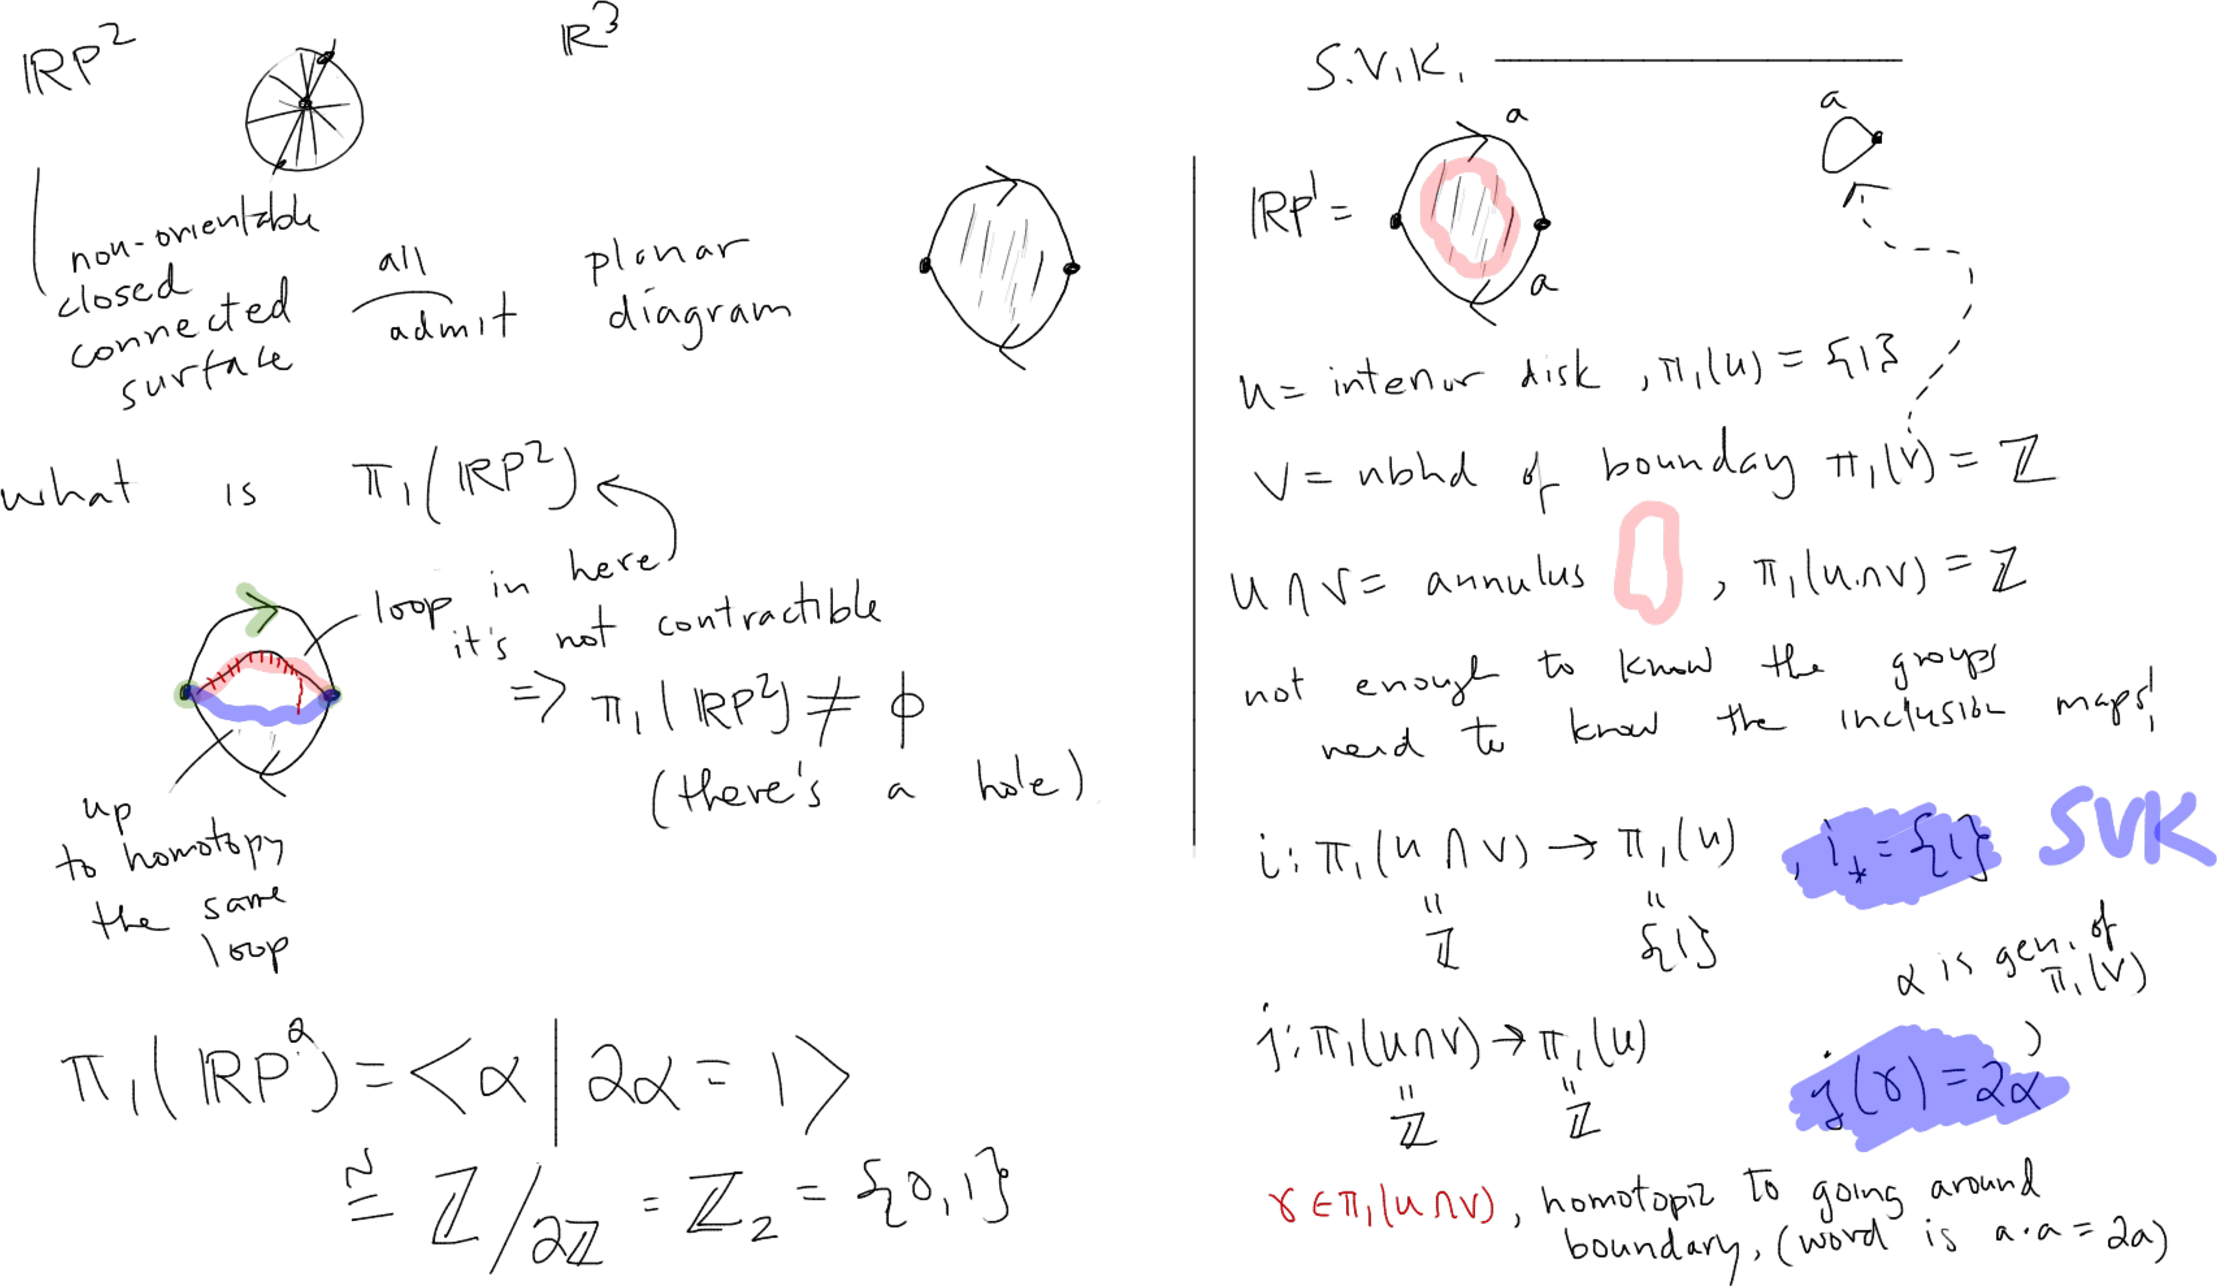 RP² R³
non-orientable
closed
connected
surface
all
admit
planar
diagram
what is π₁(RP²)
loop in here
it's not contractible
=> π₁(RP²) ≠ ϕ
(there's a hole)
up
to homotopy
the same
loop
π₁(RP²) = <α | 2α = 1>
≅ ℤ/2ℤ = ℤ₂ = {0,1}
S.V.K.
a
a
RP¹ =
a
U = interior disk, π₁(U) = {1}
V = nbhd of bounday π₁(V) = ℤ
U ∩ V = annulus , π₁(U∩V) = ℤ
not enough to know the groups
need to know the inclusion maps!
i: π₁(U ∩ V) → π₁(U) , i_* = {1} SVK
= =
ℤ {1}
α is gen. of
π₁(V)
j: π₁(U∩V) → π₁(U) , j(γ) = 2α
= =
ℤ ℤ
γ ∈ π₁(U∩V), homotopic to going around
boundary, (word is a·a = 2a)